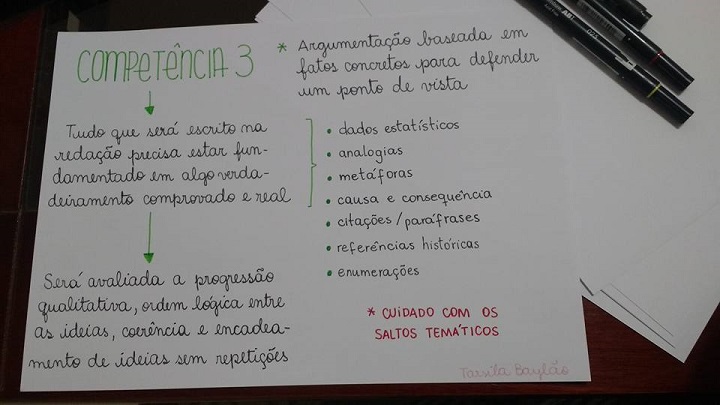 COMPETÊNCIA 3
Tudo que será escrito na
redação precisa estar fun-
damentado em algo verda-
deiramento comprovado e real
Será avaliada a progressão
qualitativa, ordem lógica entre
as ideias, coerência e encadea-
mento de ideias sem repetições
* Argumentação baseada em
fatos concretos para defender
um ponto de vista
• dados estatísticos
• analogias
• metáforas
• causa e consequência
• citações/paráfrases
• referências históricas
• enumerações
* CUIDADO COM OS
SALTOS TEMÁTICOS